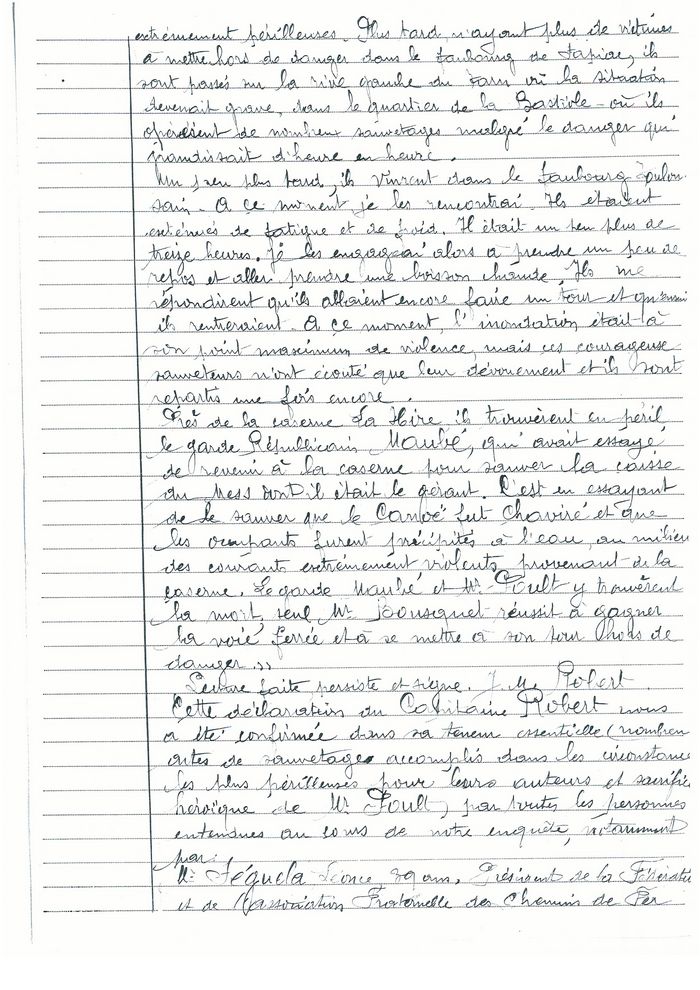 extrêmement périlleuses. Plus tard, n'ayant plus de victimes
à mettre hors de danger dans le faubourg de Sapiac, ils
sont passés sur la rive gauche du Tarn où la situation
devenait grave, dans le quartier de la Bastiole - où ils
opérèrent de nombreux sauvetages malgré le danger qui
grandissait d'heure en heure.
Un peu plus tard, ils vinrent dans le faubourg Toulou-
sain. A ce moment je les rencontrai. Ils étaient
exténués de fatigue et de froid. Il était un peu plus de
treize heures. Je les engageai alors à prendre un peu de
repos et aller prendre une boisson chaude. Ils me
répondirent qu'ils allaient encore faire un tour et
ils rentreraient. A ce moment, l'inondation était à
son point maximum de violence, mais ces courageux
sauveteurs n'ont écouté que leur dévouement et ils sont
repartis une fois encore.
Près de la caserne La Hire ils trouvèrent en péril
le garde Républicain Maubé, qui avait essayé
de revenir à la caserne pour sauver la caisse
du Mess dont il était le gérant. C'est en essayant
de le sauver que le Canoë fut chaviré et que
les occupants furent précipités à l'eau, au milieu
des courants extrêmement violents provenant de la
caserne. Le garde Maubé et Mr. Poult y trouvèrent
la mort, seul Mr. Bousquet réussit à gagner
la voie ferrée et à se mettre à son tour hors de
danger. »
Lecture faite persiste et signe. J. M. Robert.
Cette déclaration du Capitaine Robert nous
a été confirmée dans sa teneur essentielle (nombreux
actes de sauvetages accomplis dans les circonstances
les plus périlleuses pour leurs auteurs et sacrifice
héroïque de Mr. Poult), par toutes les personnes
entendues au cours de notre enquête, notamment
par:
Mr. Séguéla Léonce, 39 ans, Président de la Fédération
et de l'association Fraternelle des Chemins de Fer